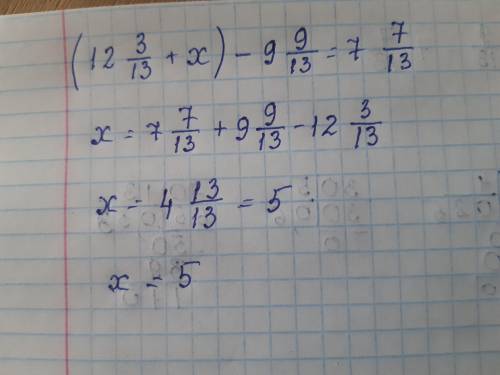 (12 3/13 + x) - 9 9/13 = 7 7/13
x = 7 7/13 + 9 9/13 - 12 3/13
x = 4 13/13 = 5
x = 5